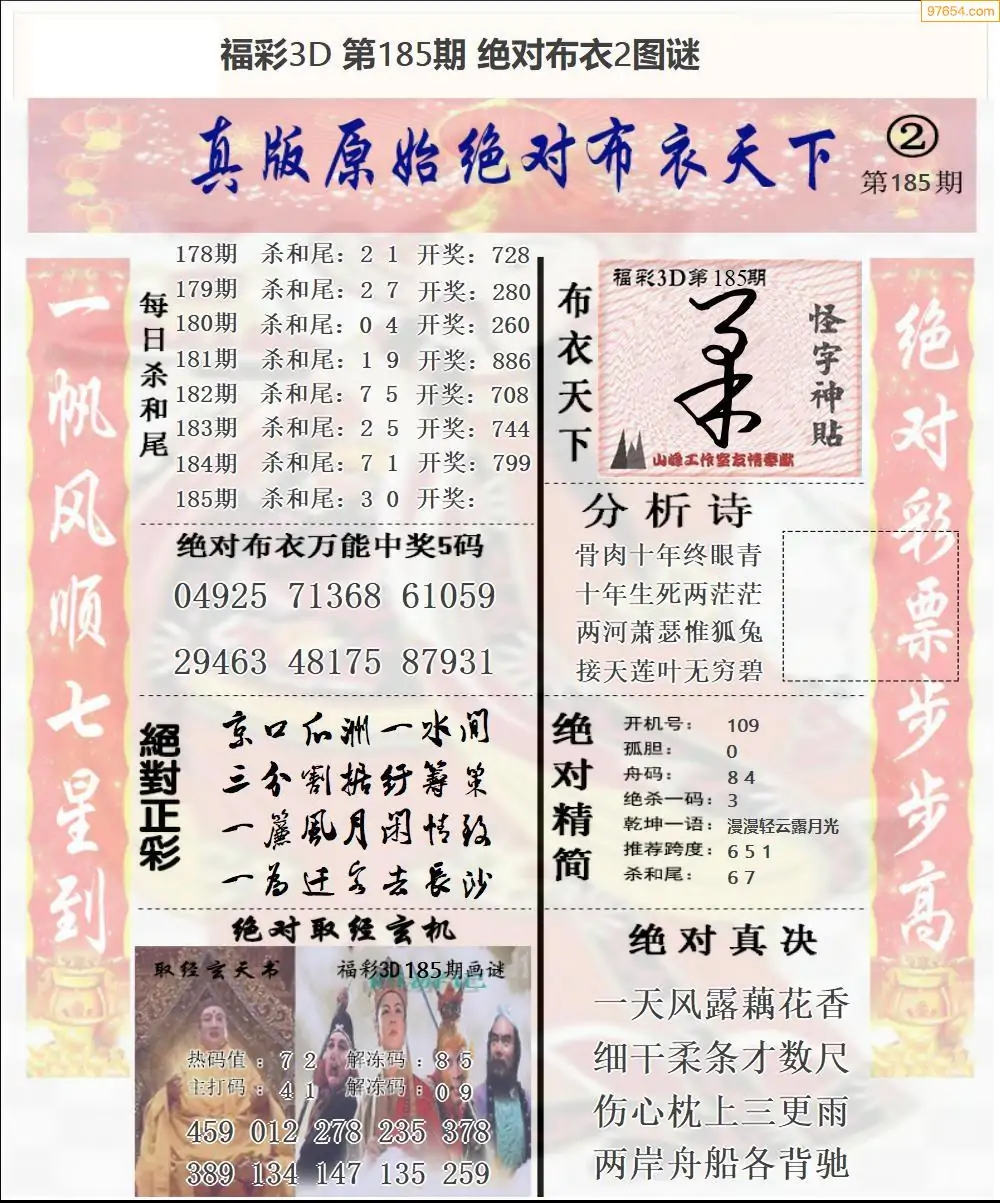 97654.com
福彩3D 第185期 绝对布衣2图谜
真版原始绝对布衣天下
②
第185期
一帆风顺七星到
每日杀和尾
178期 杀和尾：2 1 开奖：728
179期 杀和尾：2 7 开奖：280
180期 杀和尾：0 4 开奖：260
181期 杀和尾：1 9 开奖：886
182期 杀和尾：7 5 开奖：708
183期 杀和尾：2 5 开奖：744
184期 杀和尾：7 1 开奖：799
185期 杀和尾：3 0 开奖：
绝对布衣万能中奖5码
04925 71368 61059
29463 48175 87931
絕對正彩
京口瓜洲一水间
三分割据纡筹策
一簾風月闲情致
一为迁客去長沙
绝对取经玄机
取经玄天书
福彩3D185期画谜
热码值：7 2 解冻码：8 5
主打码：4 1 解冻码：0 9
459 012 278 235 378
389 134 147 135 259
布衣天下
福彩3D第185期
怪字神贴
山峰工作室友情奉献
分析诗
骨肉十年终眼青
十年生死两茫茫
两河萧瑟惟狐兔
接天莲叶无穷碧
绝对精简
开机号： 109
孤胆： 0
舟码： 8 4
绝杀一码：3
乾坤一语：漫漫轻云露月光
推荐跨度：6 5 1
杀和尾： 6 7
绝对真决
一天风露藕花香
细干柔条才数尺
伤心枕上三更雨
两岸舟船各背驰
绝对彩票步步高